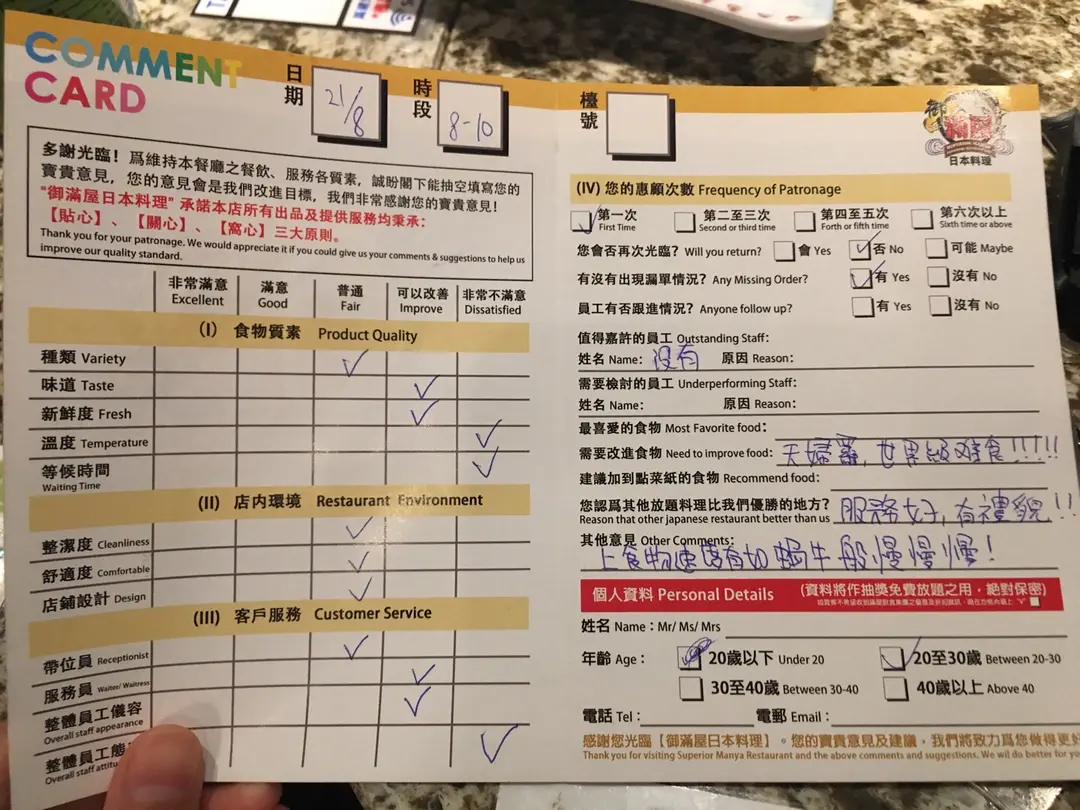 COMMENT
CARD
日期
21/8
時段
8-10
多謝光臨！為維持本餐廳之餐飲、服務各質素，誠盼閣下能抽空填寫您的
寶貴意見，您的意見會是我們改進目標，我們非常感謝您的寶貴意見！
"御滿屋日本料理" 承諾本店所有出品及提供服務均秉承：
【貼心】、【關心】、【窩心】三大原則。
Thank you for your patronage. We would appreciate it if you could give us your comments & suggestions to help us
improve our quality standard.
非常滿意 滿意 普通 可以改善 非常不滿意
Excellent Good Fair Improve Dissatisfied
(I) 食物質素 Product Quality
種類 Variety ✓
味道 Taste ✓
新鮮度 Fresh ✓
溫度 Temperature ✓
等候時間 ✓
Waiting Time
(II) 店內環境 Restaurant Environment
整潔度 Cleanliness ✓
舒適度 Comfortable ✓
店鋪設計 Design ✓
(III) 客戶服務 Customer Service
帶位員 Receptionist ✓
服務員 Waiter/ Waitress ✓
整體員工儀容 ✓
Overall staff appearance
整體員工態 ✓
Overall staff attitu
檯號
御滿屋
日本料理
(IV) 您的惠顧次數 Frequency of Patronage
✓ 第一次 第二至三次 第四至五次 第六次以上
First Time Second or third time Forth or fifth time Sixth time or above
您會否再次光臨？ Will you return? 會 Yes ✓ 否 No 可能 Maybe
有沒有出現漏單情況？ Any Missing Order? ✓ 有 Yes 沒有 No
員工有否跟進情況？ Anyone follow up? 有 Yes 沒有 No
值得嘉許的員工 Outstanding Staff:
姓名 Name: 沒有 原因 Reason:
需要檢討的員工 Underperforming Staff:
姓名 Name: 原因 Reason:
最喜愛的食物 Most Favorite food:
需要改進食物 Need to improve food: 天婦羅，世界級难食!!!!!
建議加到點菜紙的食物 Recommend food:
您認為其他放題料理比我們優勝的地方？ 服務好，有禮貌!!
Reason that other japanese restaurant better than us
其他意見 Other Comments:
上食物速度有如蝸牛般慢慢慢！
個人資料 Personal Details (資料將作抽獎免費放題之用，絕對保密)
姓名 Name：Mr/ Ms/ Mrs
年齡 Age： 20歲以下 Under 20 ✓ 20至30歲 Between 20-30
30至40歲 Between 30-40 40歲以上 Above 40
電話 Tel： 電郵 Email：
感謝您光臨【御滿屋日本料理】。您的寶貴意見及建議，我們將致力為您做得更好
Thank you for visiting Superior Manya Restaurant and the above comments and suggestions. We wil do better for yo